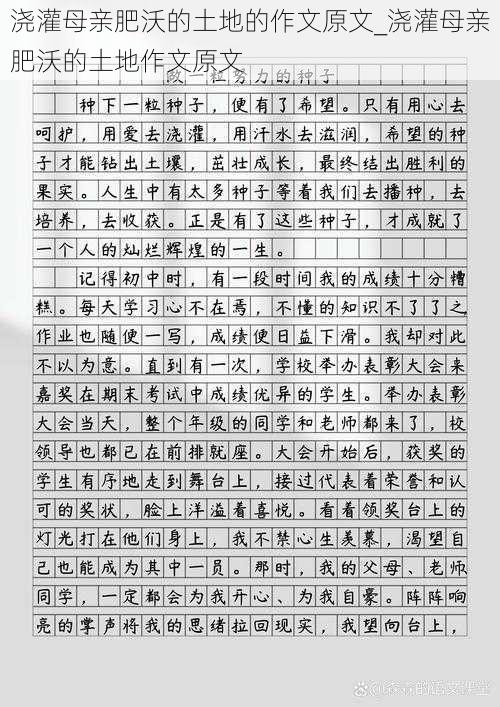 浇灌母亲肥沃的土地的作文原文_浇灌母亲
肥沃的土地作文原文
做一粒努力的种子
种下一粒种子，便有了希望。只有用心去
呵护，用爱去浇灌，用汗水去滋润，希望的种
子才能钻出土壤，茁壮成长，最终结出胜利的
果实。人生中有太多种子等着我们去播种，去
培养，去收获。正是有了这些种子，才成就了
一个人的灿烂辉煌的一生。
记得初中时，有一段时间我的成绩十分糟
糕。每天学习心不在焉，不懂的知识不了了之
作业也随便一写，成绩便日益下滑。我却对此
不以为意。直到有一次，学校举办表彰大会来
嘉奖在期末考试中成绩优异的学生。举办表彰
大会当天，整个年级的同学和老师都来了，校
领导也都已在前排就座。大会开始后，获奖的
学生有序地走到舞台上，接过代表着荣誉和认
可的奖状，脸上洋溢着喜悦。看着领奖台上的
灯光打在他们身上，我不禁心生羡慕，渴望自
己也能成为其中一员。那时，我的父母、老师
同学，一定都会为我开心、为我自豪。阵阵响
亮的掌声将我的思绪拉回现实，我望向台上，